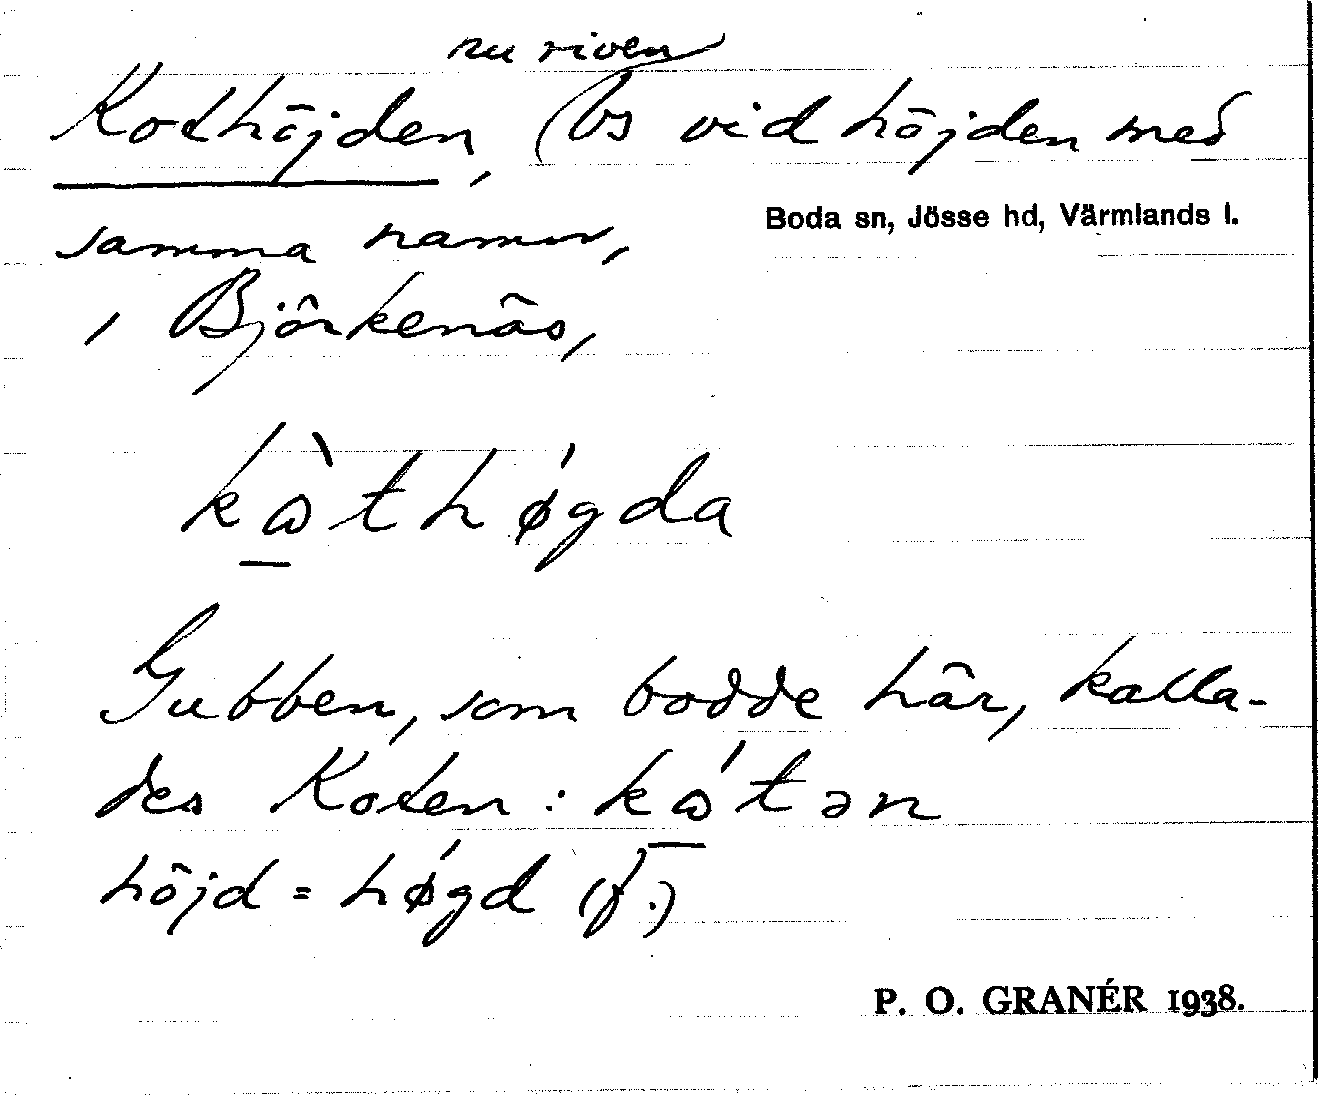 nu riven
Kothöjden, (bs vid höjden med
Boda sn, Jösse hd, Värmlands l.
samma namn,
i Björkenäs,
kὼthǿgda
Gubben, som bodde här, kalla-
des Koten: kώtən
höjd = hǿgd (f.)
P. O. GRANÉR 1938.